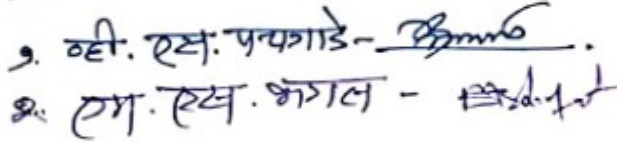 १. व्ही. एस. पन्चगाडे -
२. एम. एस. भगल -